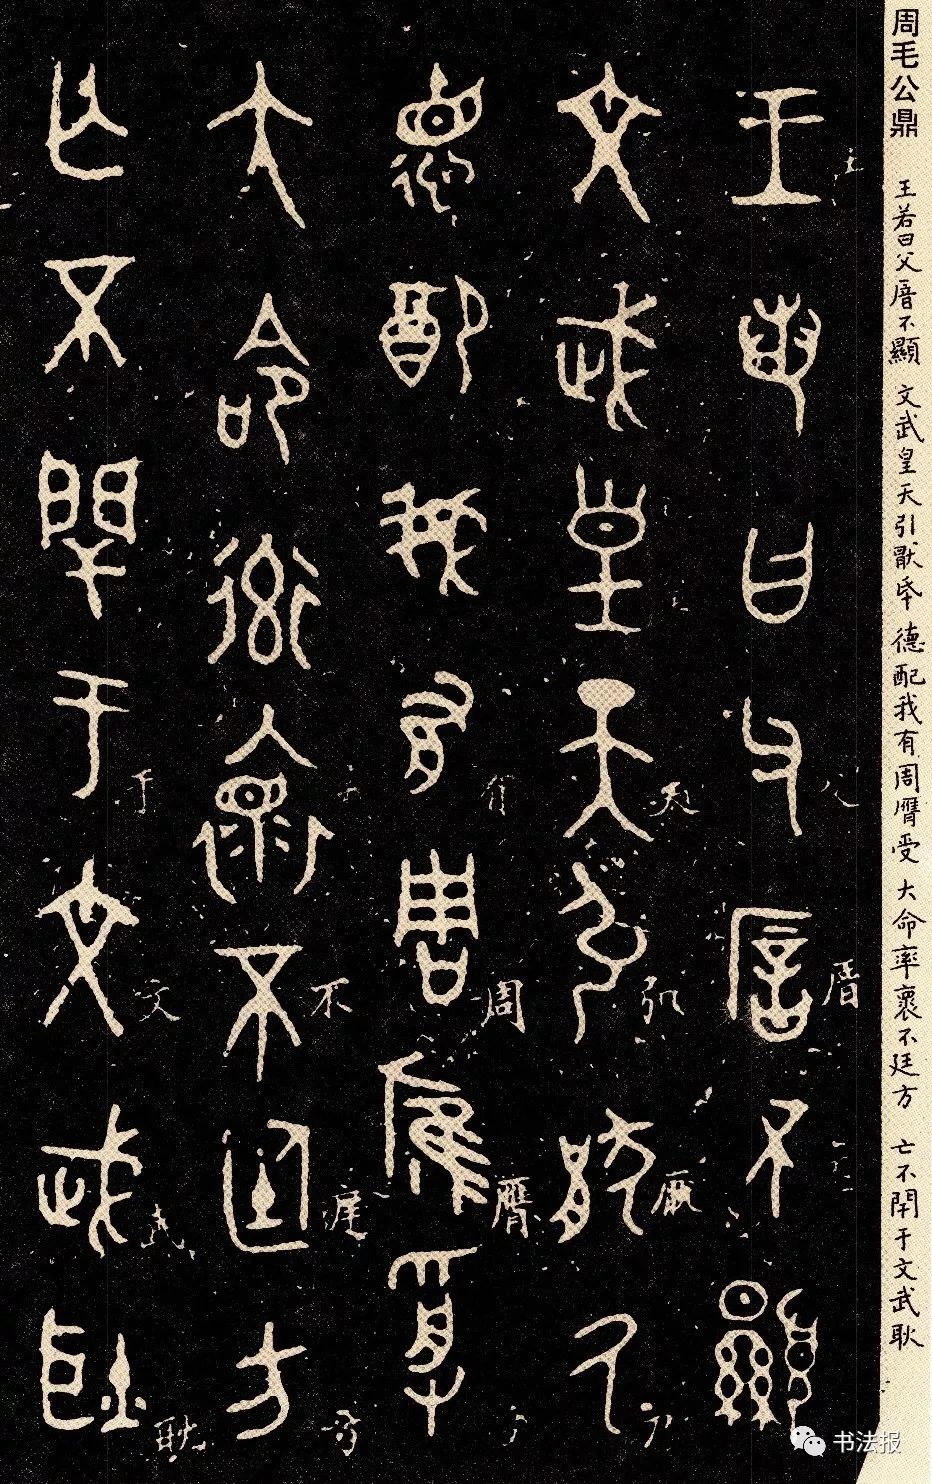 周毛公鼎
王若曰父厝不顯 文武皇天引猒氒 德配我有周膺受 大命率褱不廷方 亡不閈于文武耿
王若曰父厝不顯
文武皇天引猒氒
德配我有周膺受
大命率褱不廷方
亡不閈于文武耿
王
父
厝
天
弘
有
周
膺
不
于
文
武
耿
书法报